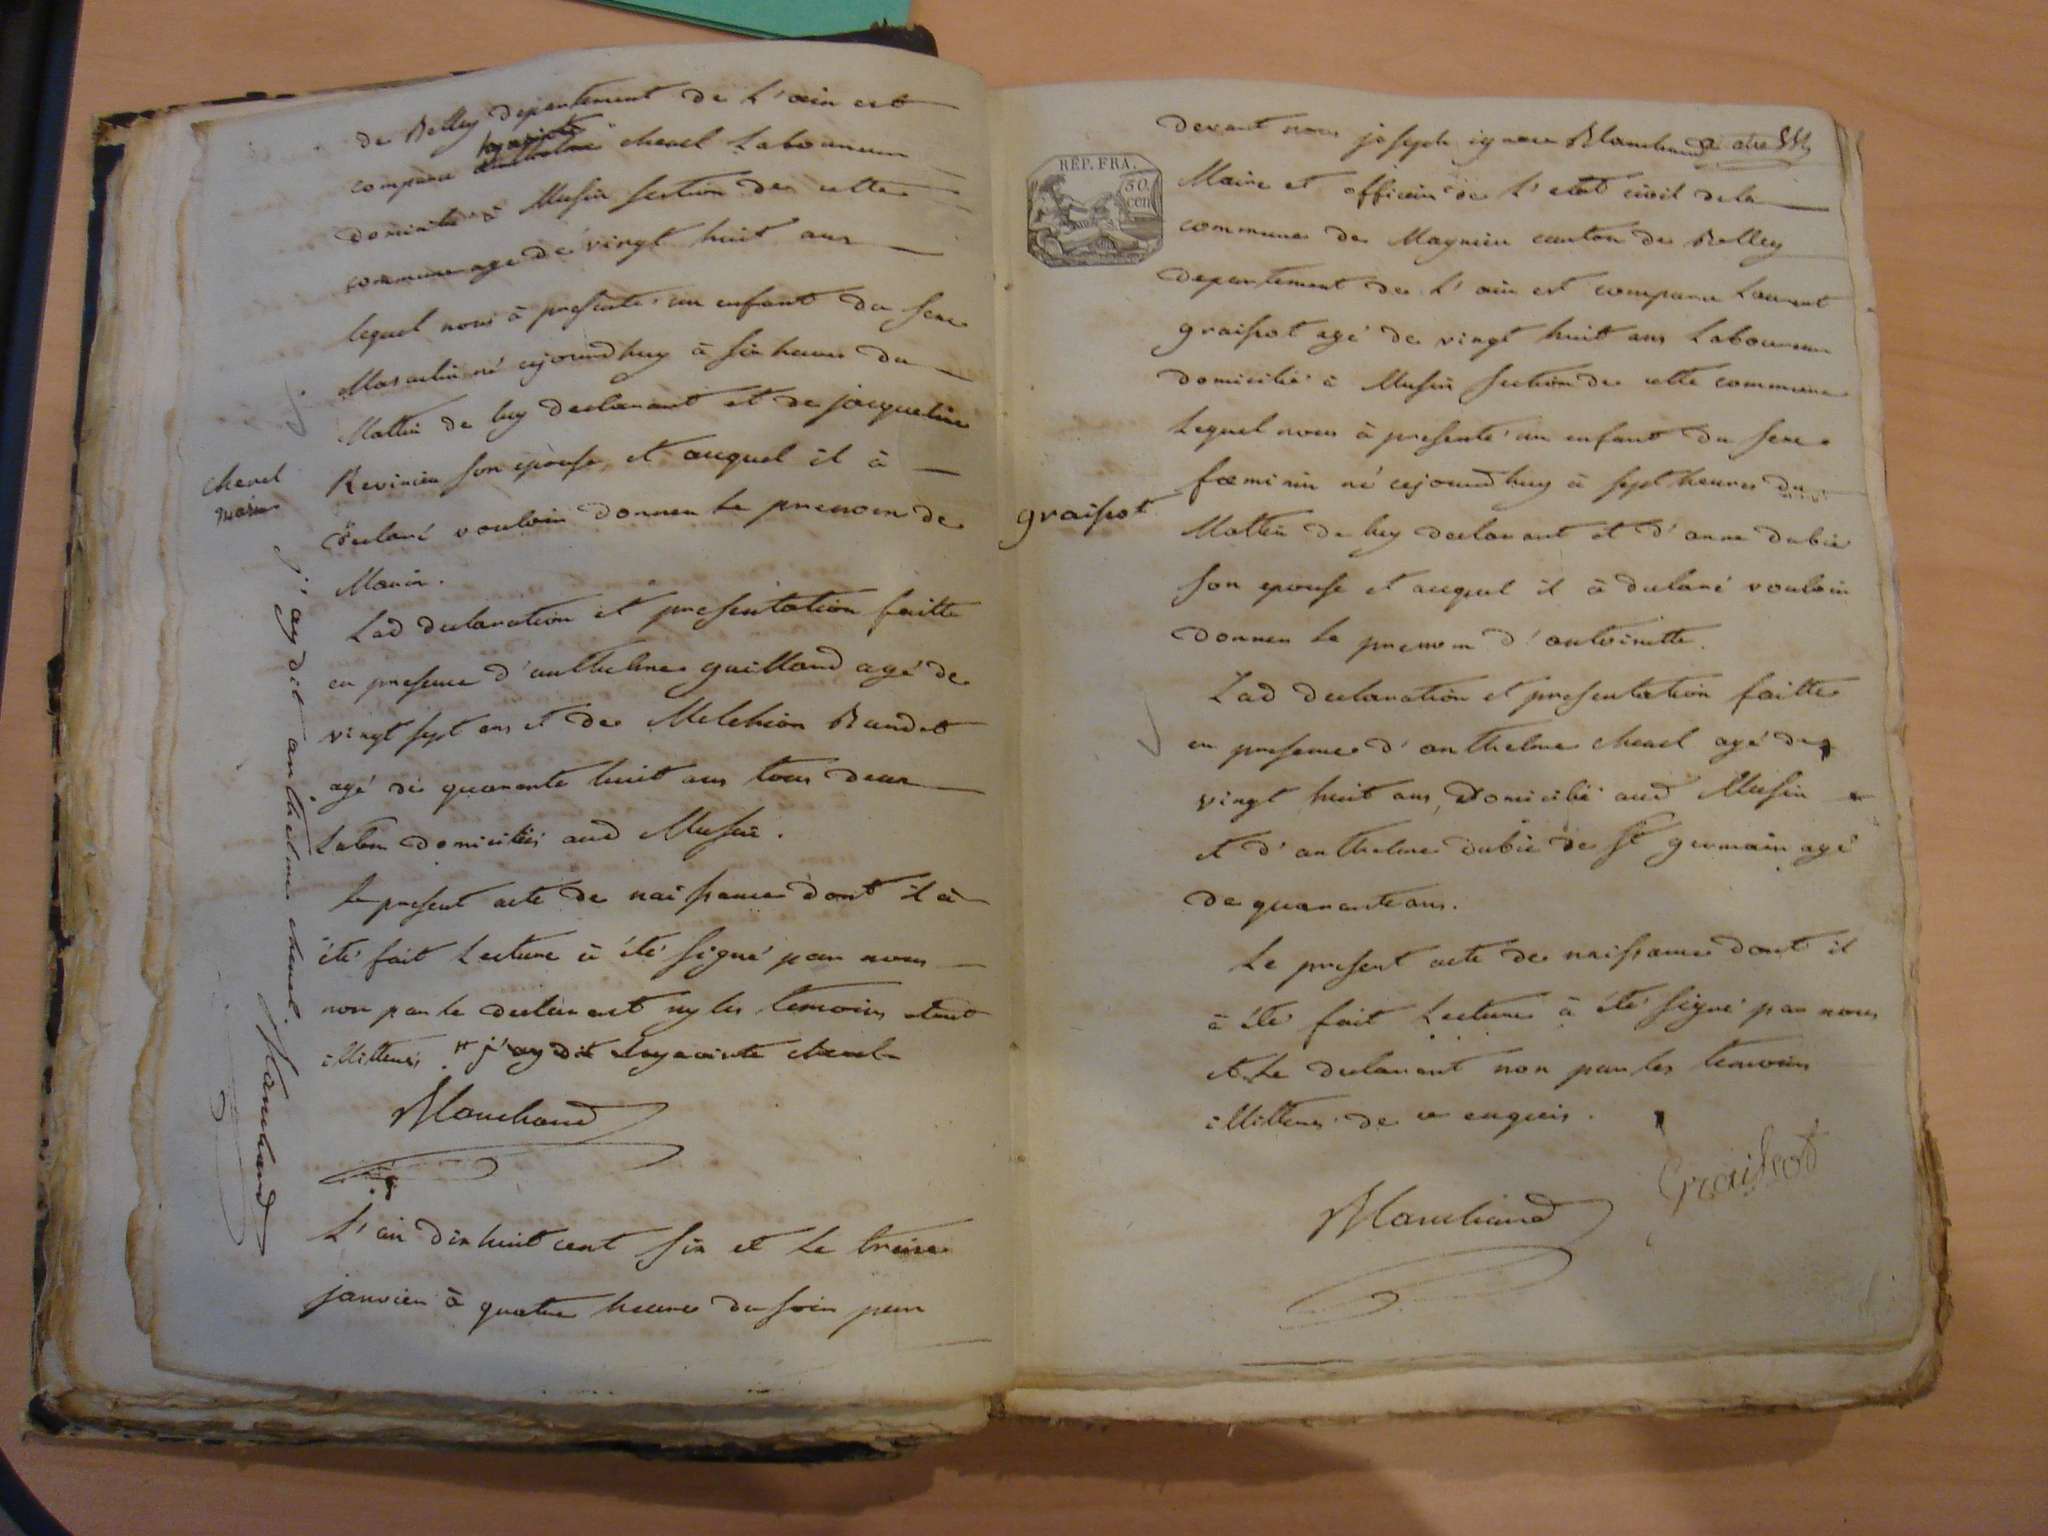 de Belley departement de L'ain est
hyacinte
comparu anthelme chevel Laboureur
domicilié à Musin section de cette
commune age de vingt huit ans
lequel nous à presenté un enfant du sexe
Masculin né cejourdhuy à six heures du
Mattin de luy declarant et de jacqueline
Revirieu son epouse, et auquel il à
declaré vouloir donner le prenom de
Marin.
chevel
marin
Lad declaration et presentation faitte
en presence d'anthelme guilland agé de
vingt sept ans et de Melchior Baudet
agé de quarante huit ans tous deux
Labrs domiciliés aud Musin.
le present acte de naissance dont il à
été fait Lecture à été signé par nous
non par le declarant ny les temoins etant
illitterés. j'ay dit hyacinte chevel
Marchand
j'ay dit anthelme chevel. Marchand
L'an dix huit cent six et le treize
janvier à quatre heures du soir par
devant nous joseph ignace Marchand
Maire et officier de L'etat civil de la
commune de Magnieu canton de Belley
departement de L'ain est comparu Laurent
graissot agé de vingt huit ans Laboureur
domicilié à Musin section de cette commune
Lequel nous à presenté un enfant du sexe
fœminin né cejourdhuy à sept heures du
Mattin de luy declarant et d'anne dubie
son epouse et auquel il à declaré vouloir
donner le prenom d'antoinette.
graissot
Lad declaration et presentation faitte
en presence d'anthelme chevel agé de
vingt huit ans, domicilié aud Musin
et d'anthelme dubie de St germain agé
de quarante ans.
Le present acte de naissance dont il
à été fait Lecture à été signé par nous
et le declarant non par les temoins
illitterés de ce enquis.
Graissot
Marchand
RÉP. FRA.
50.
cen